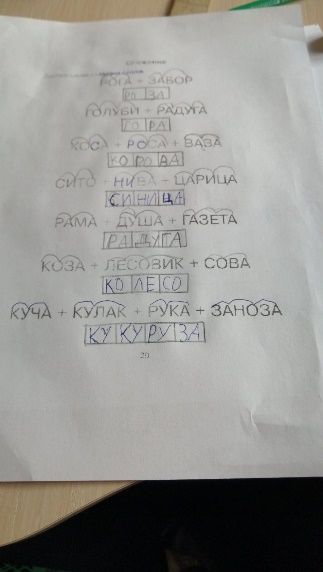 СЛОЖЕНИЕ
РОГА + ЗАБОР
РО ЗА
ГОЛУБИ + РАДУГА
ГО РА
КОСА + РОСА + ВАЗА
КО РО ВА
СИТО + НИВА + ЦАРИЦА
СИ НИ ЦА
РАМА + ДУША + ГАЗЕТА
РА ДУ ГА
КОЗА + ЛЕСОВИК + СОВА
КО ЛЕ СО
КУЧА + КУЛАК + РУКА + ЗАНОЗА
КУ КУ РУ ЗА